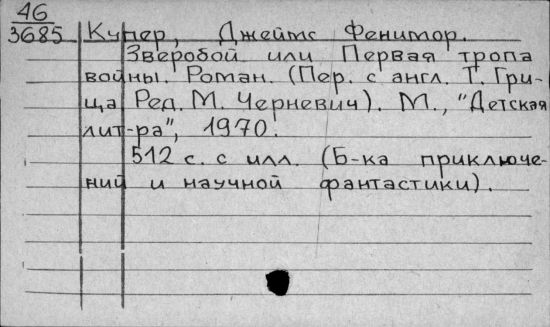 46
3685 Купер, Джеймс Фенимор.
Зверобой или Первая тропа
войны. Роман. (Пер. с англ. Т. Гри-
ца. Ред. М. Черневич). М., "Детская
лит-ра", 1970.
512 с. с илл. (Б-ка приключе-
ний и научной фантастики).